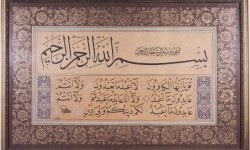 بسم الله الرحمن الرحيم
قل يا أيها الكافرون لا أعبد ما تعبدون ولا أنتم
عابدون ما أعبد ولا أنا عابد ما عبدتم ولا أنتم
عابدون ما أعبد لكم دينكم ولي دين